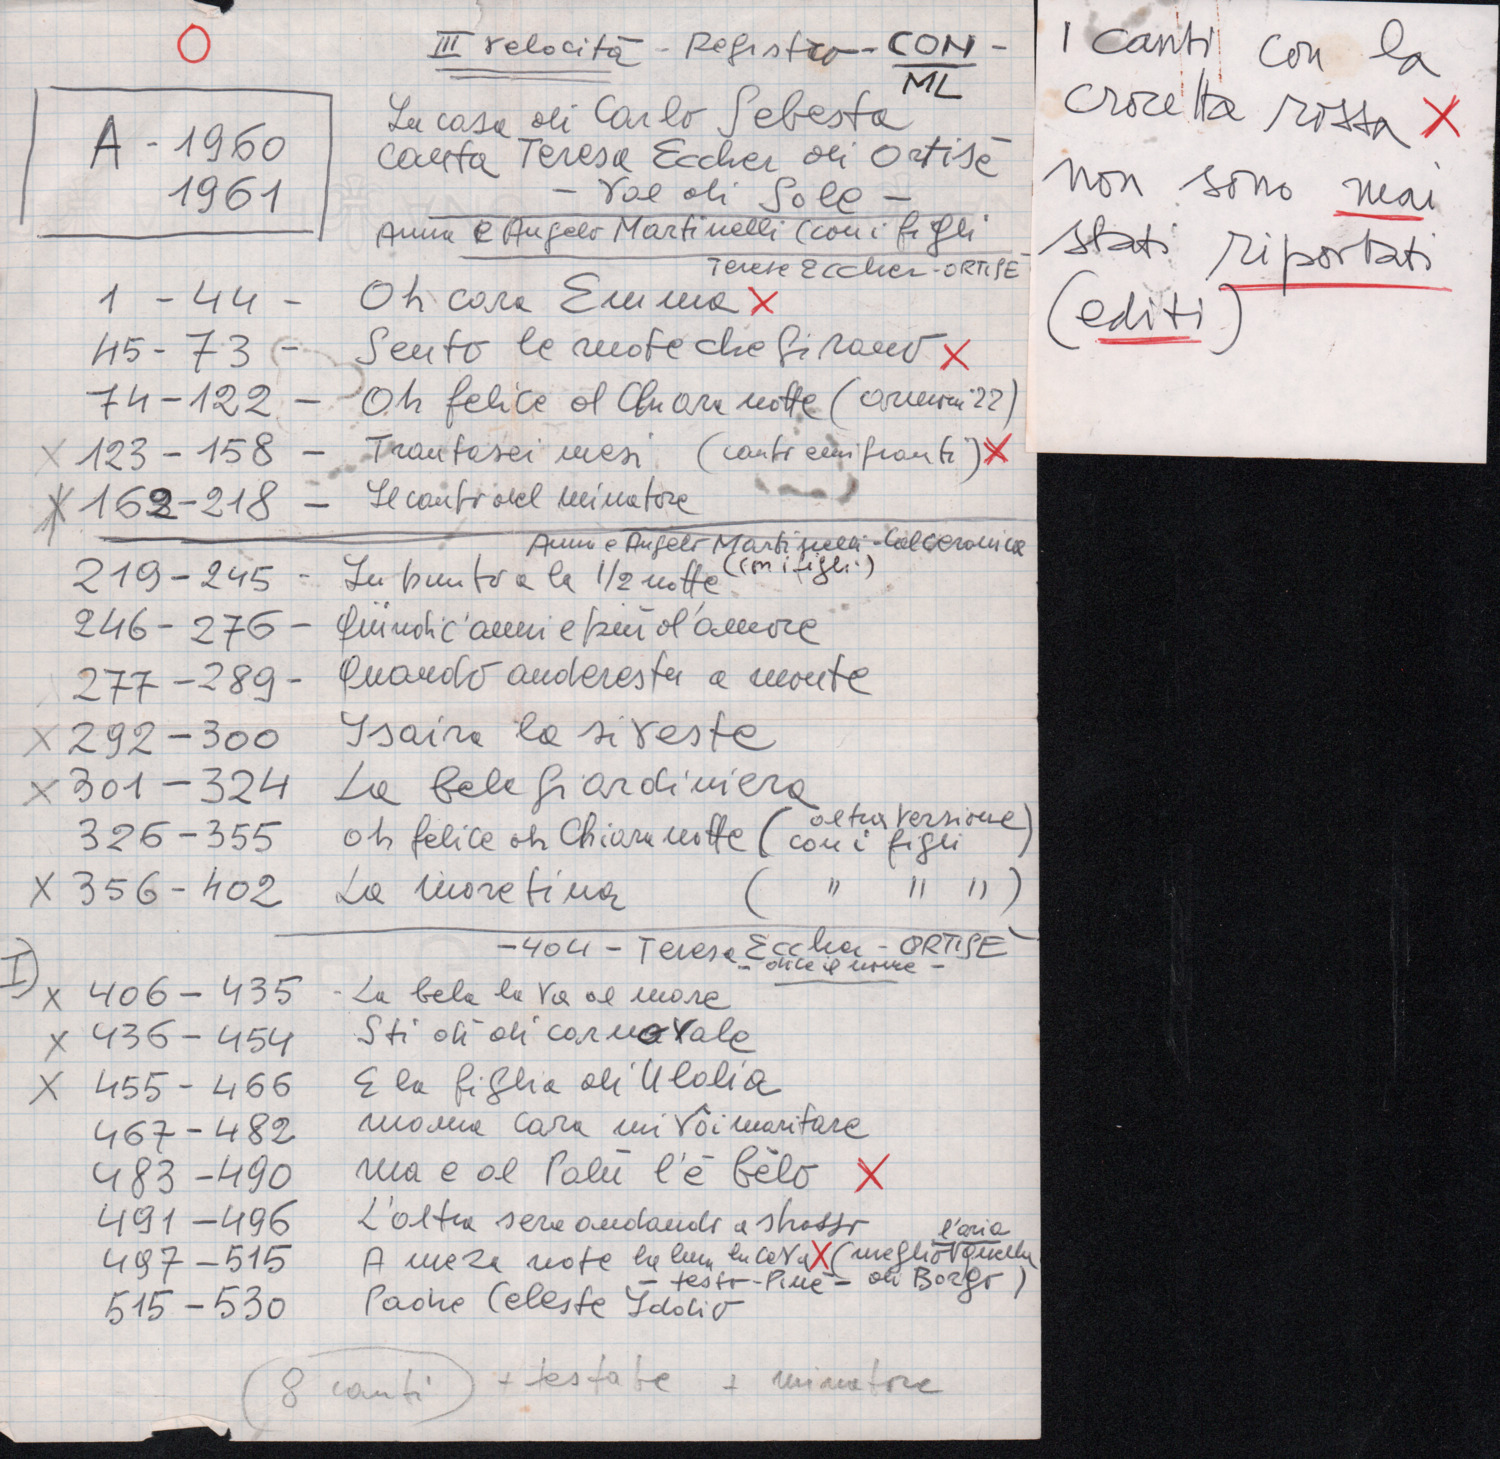 O
III velocità - Registro - CON -
ML
A - 1960
1961
In casa di Carlo Sebesta
canta Teresa Eccher di Ortisè
- Val di Sole -
Anna e Angelo Martinelli (con i figli
Teresa Eccher - ORTISÈ
1 - 44 - Oh cara Emma X
45 - 73 - Sento le ruote che girano X
74 - 122 - Oh felice oh Chiara notte (
X 123 - 158 - Trantasei mesi (canti emigranti) X
X 162 - 218 - Il canto del minatore
Anna e Angelo Martinelli - Calceranica
(con i figli)
219 - 245 - In punto a la 1/2 notte
246 - 276 - Quindic'anni e più d'amore
277 - 289 - Quando anderastu a monte
X 292 - 300 Isaira la si veste
X 301 - 324 La bela giardiniera
326 - 355 oh felice oh Chiara notte (altra versione)
con i figli
X 356 - 402 La moretina ( " " " )
- 404 - Teresa Eccher - ORTISÈ
- dice il nome -
I)
X 406 - 435 - La bela la va al mare
X 436 - 454 Sti dì di carnovale
X 455 - 466 E la figlia di Ulalia
467 - 482 mama cara mi vôi maritare
483 - 490 ma e al Palù l'è bèlo X
491 - 496 L'altra sera andando a spasso
497 - 515 A meza note la luna levava X (meglio l'aria quella
- testo - Piné - di Borgo)
515 - 530 Padre Celeste Iddio
(8 canti) + testate + minatore
I canti con la
crocetta rossa X
non sono mai
stati riportati
(editi)